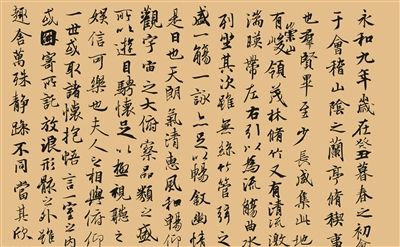 永和九年歲在癸丑暮春之初
于會稽山陰之蘭亭脩稧事
也群賢畢至少長咸集此地
有崇山峻領茂林脩竹又有清流
湍暎帶左右引以為流觴曲水
列坐其次雖無絲竹管弦之
盛一觴一詠亦足以暢敘幽情
是日也天朗氣清惠風和暢仰
觀宇宙之大俯察品類之盛
所以遊目騁懷足以極視聽之
娛信可樂也夫人之相與俯仰
一世或取諸懷抱悟言一室之內
或因寄所託放浪形骸之外雖
趣舍萬殊靜躁不同當其欣